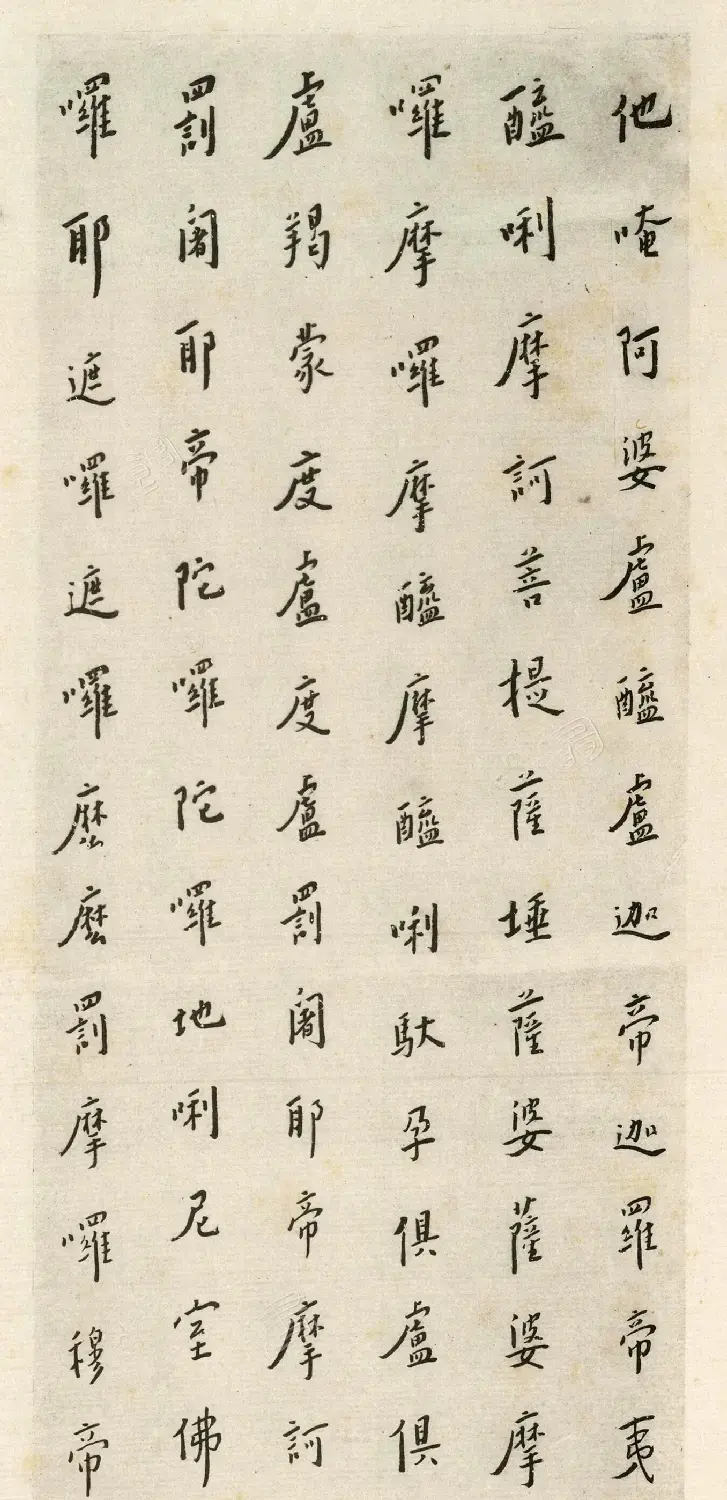 他唵阿婆盧醯盧迦帝迦羅帝夷
醯唎摩訶菩提薩埵薩婆薩婆摩
囉摩囉摩醯摩醯唎馱孕俱盧俱
盧羯蒙度盧度盧罰闍耶帝摩訶
罰闍耶帝陀囉陀囉地唎尼室佛
囉耶遮囉遮囉麼麼罰摩囉穆帝